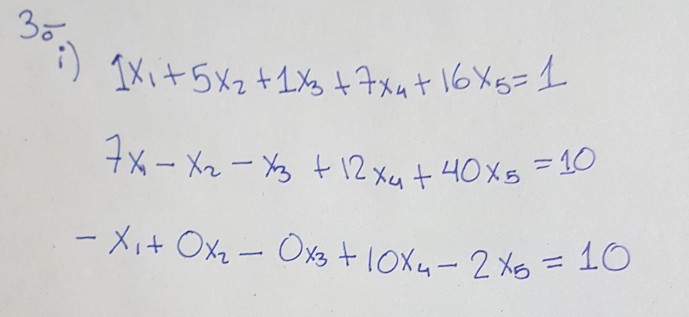 3o-
i) 1x₁ + 5x₂ + 1x₃ + 7x₄ + 16x₅ = 1
7x₁ - x₂ - x₃ + 12x₄ + 40x₅ = 10
- x₁ + 0x₂ - 0x₃ + 10x₄ - 2x₅ = 10